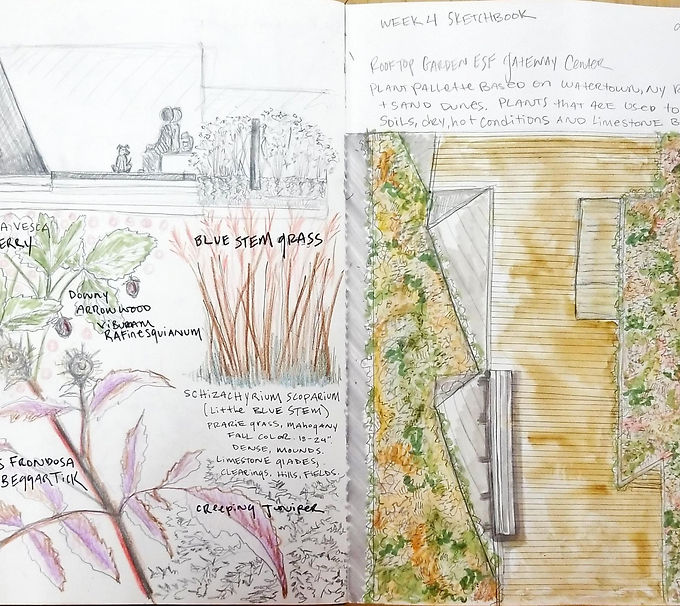 WEEK 4 SKETCHBOOK
ROOFTOP GARDEN ESF GATEWAY CENTER
PLANT PALLETTE BASED ON WATERTOWN, NY
+ SAND DUNES. PLANTS THAT ARE USED TO
SOILS, DRY, HOT CONDITIONS AND LIMESTONE B
A VESCA
ERRY
DOWNY
ARROWWOOD
RAFINESQUIANUM
BLUE STEM GRASS
SCHIZACHYRIUM SCOPARIUM
(LITTLE BLUE STEM)
PRARIE GRASS, MAHOGANY
FALL COLOR. 18-24".
DENSE, MOUNDS.
LIMESTONE GLADES,
CLEARINGS. HILLS, FIELDS.
S FRONDOSA
BEGGARTICK
CREEPING JUNIPER